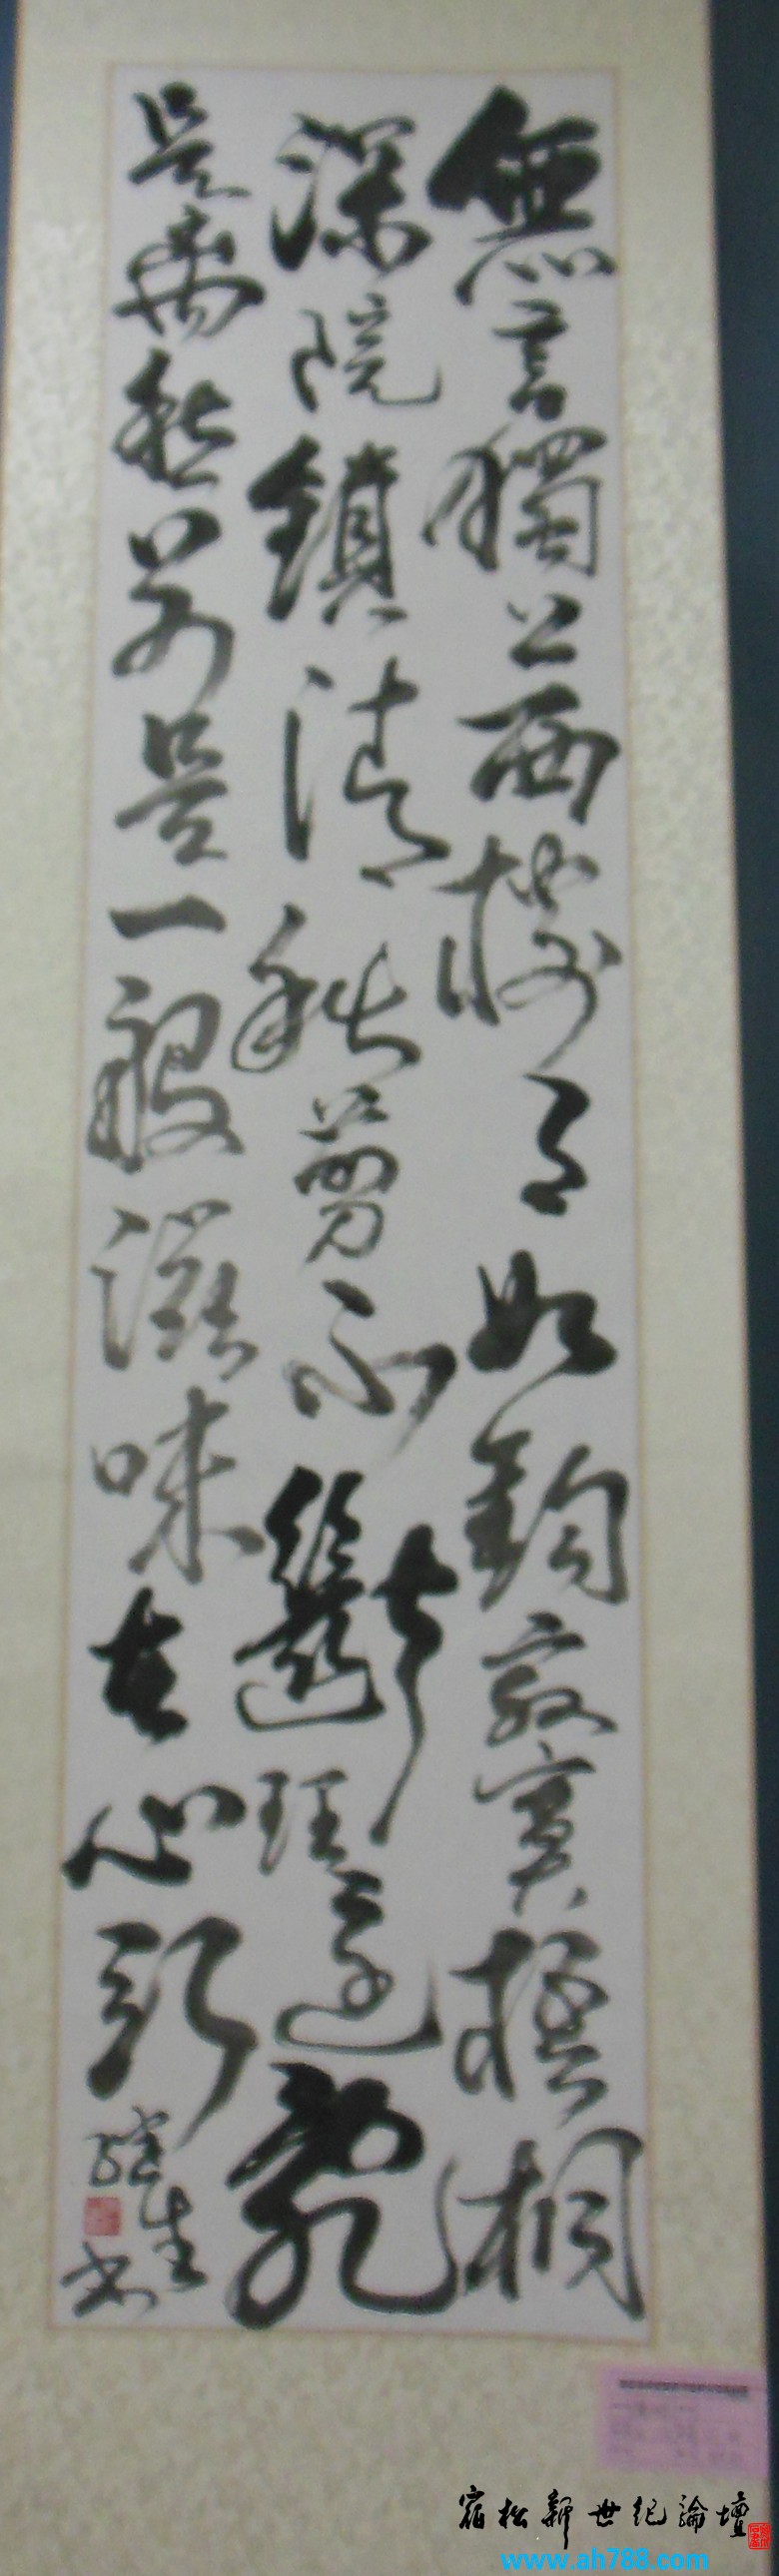 無言獨上西樓月如鈎寂寞梧桐
深院鎖清秋剪不斷理還亂
是离愁別是一般滋味在心頭
生书
宿松新世纪論壇
www.ah788.com